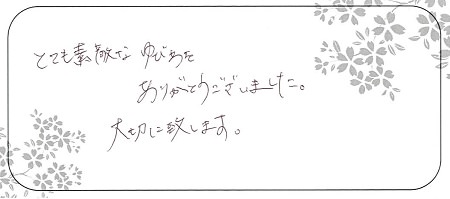 とても素敵な ゆびわを
ありがとうございました。
大切に致します。